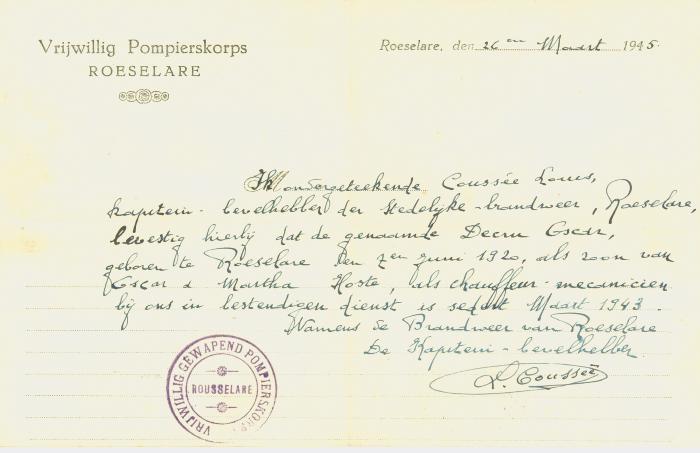 Vrijwillig Pompierskorps
ROESELARE
Roeselare, den 26en Maart 1945.
Ik ondergeteekende Coussée Louis,
Kapitein - bevelhebber der stedelijke-brandweer, Roeselare,
bevestig hierbij dat de genaamde Decru Oscar,
geboren te Roeselare den 2en juni 1920, als zoon van
Oscar & Martha Hoste, als chauffeur-mecanicien
bij ons in bestendigen dienst is sedert Maart 1943.
Namens de Brandweer van Roeselare
De Kapitein - bevelhebber
L. Coussée
VRIJWILLIG GEWAPEND POMPIERSKORPS
ROUSSELARE